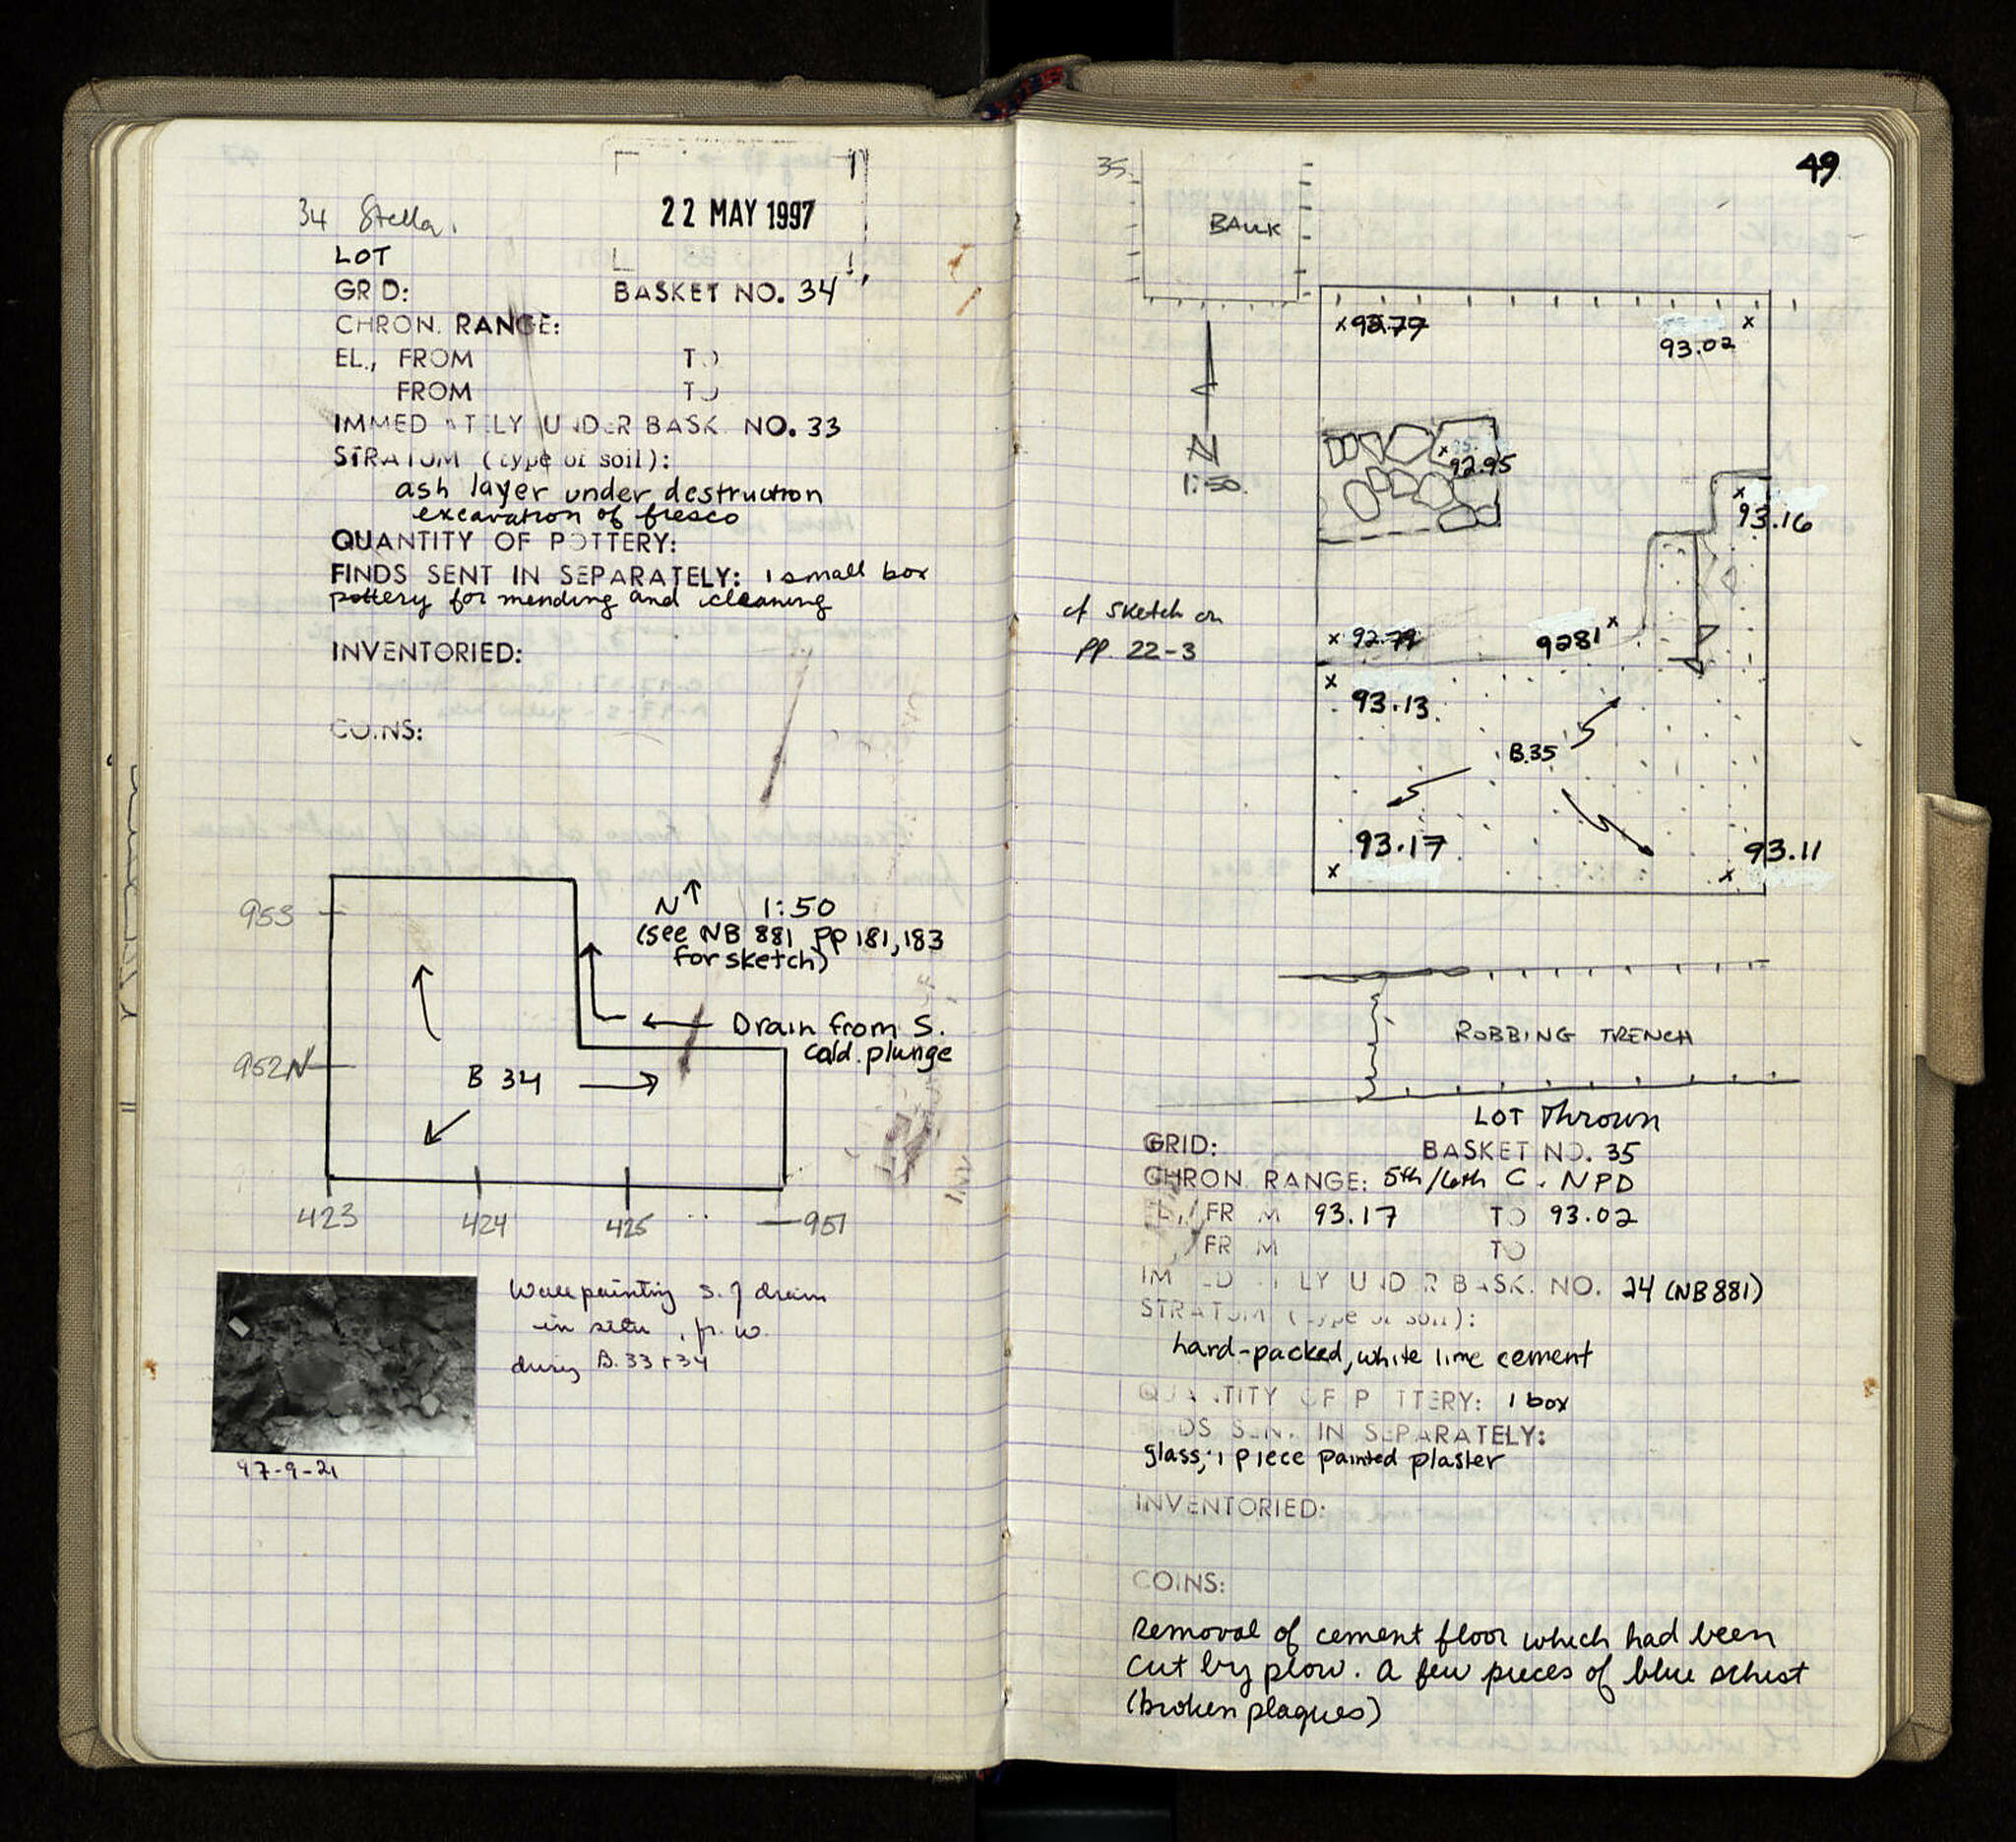 34 Stella.
22 MAY 1997
LOT
GRID:
BASKET NO. 34
CHRON. RANGE:
EL., FROM TO
FROM TO
IMMEDIATELY UNDER BASK. NO. 33
STRATUM (type of soil):
ash layer under destruction
excavation of fresco
QUANTITY OF POTTERY:
FINDS SENT IN SEPARATELY: 1 small box
pottery for mending and cleaning
INVENTORIED:
COINS:
953
N 1:50
(see NB 881 pp 181, 183
for sketch)
Drain from S.
cold plunge
952N
B 34
423
424
425
951
Wall painting S. of drain
in situ, fr. W.
during B. 33 + 34
97-9-21
49
35
BAULK
92.77
93.02
N
1:50
92.95
93.16
cf sketch on
pp. 22-3
92.79
92.81
93.13
B.35
93.17
93.11
ROBBING TRENCH
LOT Thrown
GRID:
BASKET NO. 35
CHRON. RANGE: 5th/6th C. NPD
EL., FROM 93.17 TO 93.02
FROM TO
IMMEDIATELY UNDER BASK. NO. 24 (NB 881)
STRATUM (type of soil):
hard-packed, white lime cement
QUANTITY OF POTTERY: 1 box
FINDS SENT IN SEPARATELY:
glass, 1 piece painted plaster
INVENTORIED:
COINS:
Removal of cement floor which had been
cut by plow. A few pieces of blue schist
(broken plaques)